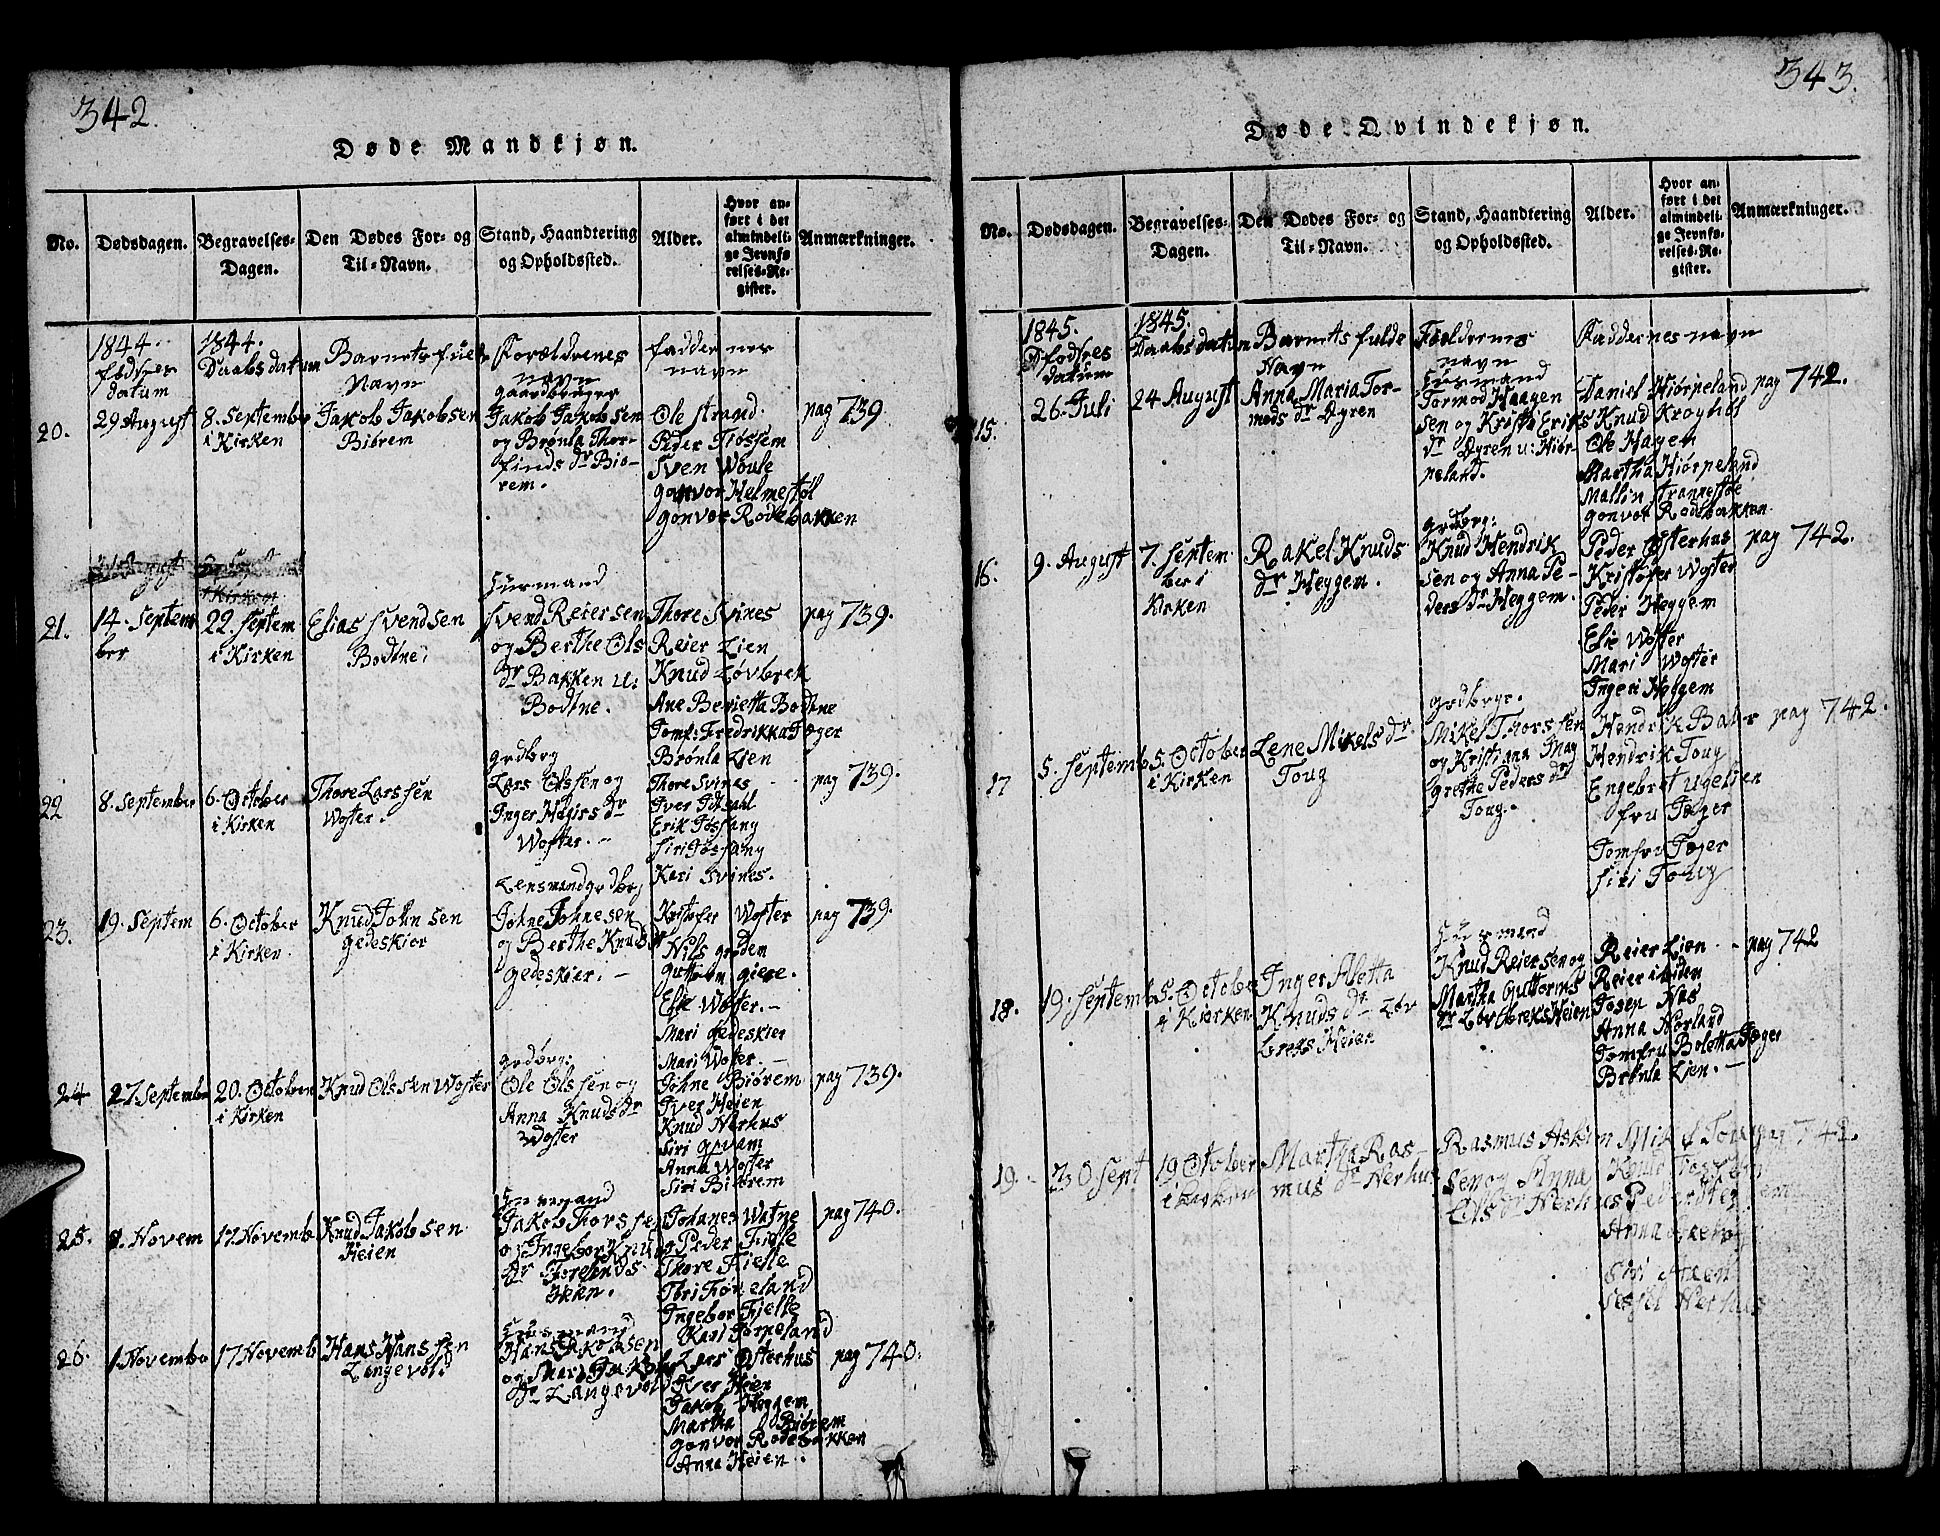 342.
Døde Mandkjøn.
No.
Dødsdagen.
Begravelses-
Dagen.
Den Dødes For- og
Til-Navn.
Stand, Haandtering
og Opholdssted.
Alder.
Hvor an-
ført i det
almindeli-
ge Jevnfø-
relses-Re-
gister.
Anmærkninger.
1844.
fødsres
datum
1844.
Daabs datum
Barnets
Navn
Forældrenes
navn
faddernes
navn
20.
29 August
8. September
i Kirken
Jakob Jakobsen
Biörem
gaardbruger
Jakob Jakobsen
og Brønla Thor-
finds dr Biö-
rem.
Ole Strand.
Peder Tiøssem
Sven Woule
gonvor Helmestøl
gonvor Rodebakken
pag 739.
21.
14. Septem
ber
22. Septem
i Kirken
Elias Svendsen
Bodtne.
Huusmand
Svend Reiersen
og Berthe Ols
dr Bakken u:
Bodtne.
Thore Svines
Reier Lien
Knud Løvbrek
Ane Berietta Bodtne
Jomf: Fredrikka Jæger
Brønla Lien
pag 739.
22
8. September
6. October
i Kirken
Thore Larssen
Woster.
grdbrg
Lars Olssen og
Inger Hegirs dr
Woster. -
Thore Svines
Iver Idsahl
Erik Jøssang
Siri Jøssang
Kari Svines.
pag 739.
23.
19. Septem
6. October
i Kirken
Knud John sen
Gedeskier
Lensmand grdbrg
Johne Johnesen
og Berthe Knuds dr
Gedeskier. -
Kristofer Woster
Nils grødem
Guttorm giere.
Elie Woster. -
Mari Gedeskier
Mari Woster. -
pag 739.
24
27. September
20. October
i Kirken
Knud Olssen Woster
grdbrg:
Ole Olssen og
Anna Knuds dr
Woster
Johne Biörem
Iver Heien
Knud Nerhus
Siri Qvam
Anna Woster
Siri Biörem
pag 739.
25.
Novem
17. Novemb
Knud Jakobsen
Heien
Huusmand
Jakob Thorssen
og Ingeborg Knud
dr
Heien.
Johanes Watne
Peder Fielle
Thore Fielle
Ingebor Fielle
Kari Jörpeland
pag 740.
26.
1 Novembe
17 Novemb
Hans Hanssen
Langevol.
Huusmand
Hans Jakobsen
og Mari Jakobs
dr Langevold
Lars Østerhus
Iver Heien
Jakob Heggem
Martha Biörem
gonvor Rodebakken
Anna Heien.
pag 740.
343.
Døde Qvindekjøn.
No.
Dødsdagen.
Begravelses-
Dagen.
Den Dødes For- og
Til-Navn.
Stand, Haandtering
og Opholdssted.
Alder.
Hvor an-
ført i det
almindeli-
ge Jevnfø-
relses-Re-
gister.
Anmærkninger.
1845.
fødsres
datum
1845.
Daabs datum
Barnets fulde
Navn
Foreldrenes
navn
Faddernes navn
15.
26. Juli
24 August
Anna Maria Tor-
mods dr Øyren
Huusmand
Tormod Haagen
sen og Eriks
dr Øyren u: Hiör-
peland.
Daniel Hiörpeland
Knud Kroghol
Ole Hagen
Martha Hiörpeland
Mallin
gonvor Rodebakken
pag 742.
16.
9. August
7. Septem
ber i
Kirken
Rakel Knuds
dr Heggem.
grdbrg:
Knud Hendrik
sen og Anna Pe-
ders dr Heggem.
Peder Østerhus
Kristofer Woster
Peder Heggem
Elie Woster
Mari Woster
Ingeri Heggem
pag 742.
17
5. Septemb
5. October
i Kirken
Lene Mikels dr
Toug
grdbrgr.
Mikel Thorssen
og Kristiana Inag
grethe Peders dr
Toug.
Hendrik
Hendrik Toug
Engebret Ugelsien
fru Jæger
Jomfru Jæger
Siri Toug
pag 742.
18.
19. Septemb
5. October
i Kirken
Inger Aletta
Knuds dr Løv
breks Heien
Huusmand
Knud Reiersen og
Martha Guttorms
dr Løvbreks Heien
Reier Lien. -
Reier i Liden
Josep Nas
Anna Norland
Jomfru Boletta Jæger
Brønla Lien. -
pag 742
19.
30 Sept
19 October
i Kirken
Martha Ras-
mus dr Nerhus
Rasmus Askien
sen og Anna
Ols dr Nerhus
Knud
Anna
Siri
Sessel Nerhus
742.